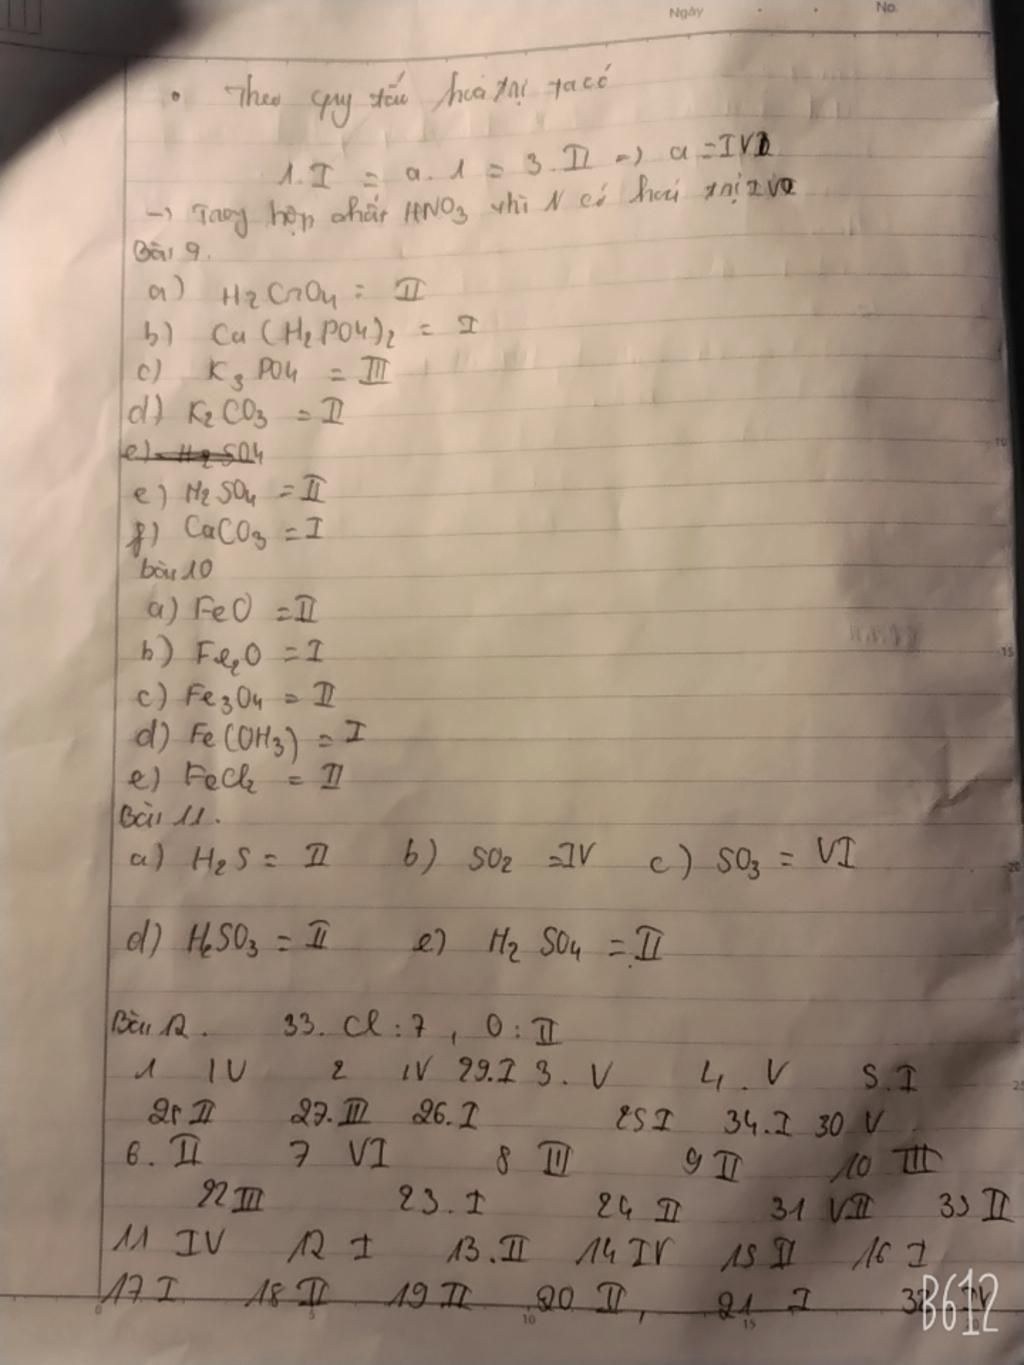 Ngày No.
• Theo quy tắc hoá trị ta có
1.I = a.1 = 3.II => a = IV
-> Trong hợp chất HNO3 thì N có hoá trị IV
Bài 9.
a) H2CrO4 = II
b) Ca(H2PO4)2 = I
c) K3PO4 = III
d) K2CO3 = II
e) H2SO4
e) H2SO4 = II
f) CaCO3 = I
bài 10
a) FeO = II
b) Fe2O = I
c) Fe3O4 = II
d) Fe(OH3) = I
e) FeCl2 = II
Bài 11.
a) H2S = II b) SO2 = IV c) SO3 = VI
d) H2SO3 = II e) H2SO4 = II
Bài 12. 33. Cl : 7, O : II
1 IV 2 IV 29.I 3. V 4. V 5. I
II 27. III 26. I 25 I 34. I 30 V
6. II 7 VI 8 III 9 II 10 III
22 III 23. I 24 II 31 VII 33 II
11 IV 12 I 13. II 14 IV 15 II 16 I
17 I 18 II 19 II 20 II, 21 I IV
B612